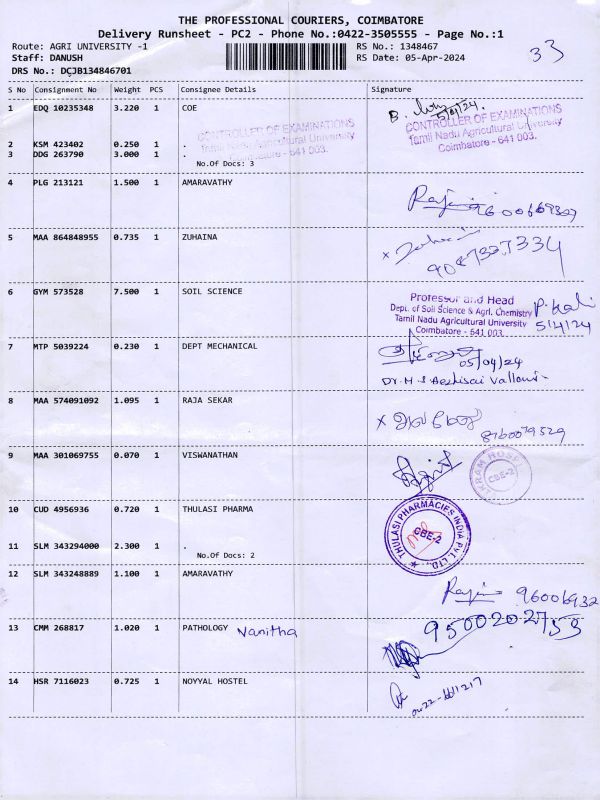 THE PROFESSIONAL COURIERS, COIMBATORE
Delivery Runsheet - PC2 - Phone No.:0422-3505555 - Page No.:1
Route: AGRI UNIVERSITY -1 RS No.: 1348467
Staff: DANUSH RS Date: 05-Apr-2024
33
DRS No.: DCJB134846701
S No Consignment No Weight PCS Consignee Details Signature
1 EDQ 10235348 3.220 1 COE
B. 5/4/24.
CONTROLLER OF EXAMINATIONS
Tamil Nadu Agricultural University
Coimbatore - 641 003.
CONTROLLER OF EXAMINATIONS
Tamil Nadu Agricultural University
Coimbatore - 641 003.
2 KSM 423402 0.250 1 .
3 DDG 263790 3.000 1 .
No.Of Docs: 3
4 PLG 213121 1.500 1 AMARAVATHY
5 MAA 864848955 0.735 1 ZUHAINA
x
6 GYM 573528 7.500 1 SOIL SCIENCE
Professor and Head
Dept. of Soil Science & Agrl. Chemistry
Tamil Nadu Agricultural University
Coimbatore - 641 003.
P. Kali
5/4/24
7 MTP 5039224 0.230 1 DEPT MECHANICAL
05/04/24
8 MAA 574091092 1.095 1 RAJA SEKAR
x
8760079529
9 MAA 301069755 0.070 1 VISWANATHAN
CBE-2
10 CUD 4956936 0.720 1 THULASI PHARMA
THULASI PHARMACIES INDIA PVT. LTD.,
CBE-2
11 SLM 343294000 2.300 1 .
No.Of Docs: 2
12 SLM 343248889 1.100 1 AMARAVATHY
13 CMM 268817 1.020 1 PATHOLOGY Vanitha
9500202753
14 HSR 7116023 0.725 1 NOYYAL HOSTEL